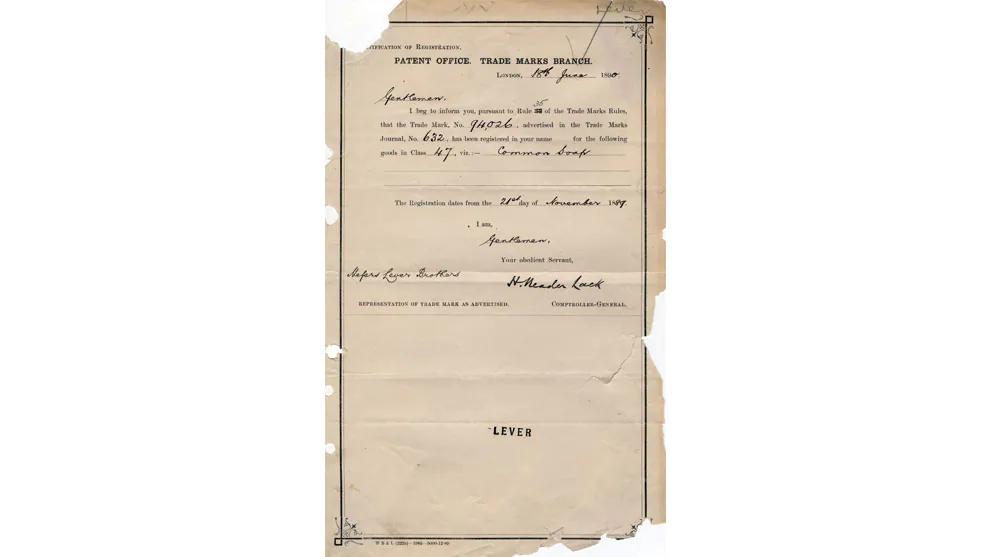 TIFICATION OF REGISTRATION.
PATENT OFFICE. TRADE MARKS BRANCH.
LONDON, 18th June 1890
Gentlemen,
I beg to inform you, pursuant to Rule 35 of the Trade Marks Rules,
that the Trade Mark, No. 94,026, advertised in the Trade Marks
Journal, No. 632, has been registered in your name for the following
goods in Class 47, viz.:— Common Soap
The Registration dates from the 21st day of November 1889.
I am,
Gentlemen,
Your obedient Servant,
Messrs Lever Brothers
H. Reader Lack
REPRESENTATION OF TRADE MARK AS ADVERTISED. COMPTROLLER-GENERAL.
LEVER